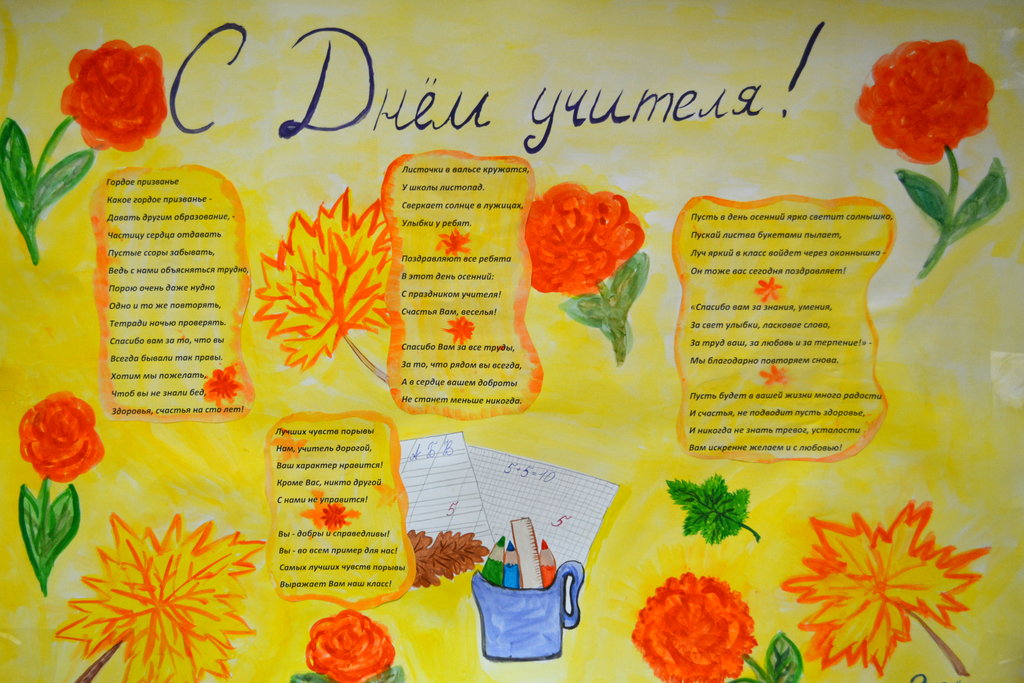 С Днём учителя!
Гордое призванье
Какое гордое призванье -
Давать другим образование, -
Частицу сердца отдавать
Пустые ссоры забывать,
Ведь с нами объясняться трудно,
Порою очень даже нудно
Одно и то же повторять,
Тетради ночью проверять.
Спасибо вам за то, что вы
Всегда бывали так правы.
Хотим мы пожелать,
Чтоб вы не знали бед,
Здоровья, счастья на сто лет!
Листочки в вальсе кружатся,
У школы листопад.
Сверкает солнце в лужицах,
Улыбки у ребят.
Поздравляют все ребята
В этот день осенний:
С праздником учителя!
Счастья Вам, веселья!
Спасибо Вам за все труды,
За то, что рядом вы всегда,
А в сердце вашем доброты
Не станет меньше никогда.
Пусть в день осенний ярко светит солнышко,
Пускай листва букетами пылает,
Луч яркий в класс войдет через оконнышко -
Он тоже вас сегодня поздравляет!
«Спасибо вам за знания, умения,
За свет улыбки, ласковое слово,
За труд ваш, за любовь и за терпение!» -
Мы благодарно повторяем снова.
Пусть будет в вашей жизни много радости
И счастья, не подводит пусть здоровье,
И никогда не знать тревог, усталости
Вам искренне желаем и с любовью!
Лучших чувств порывы
Нам, учитель дорогой,
Ваш характер нравится!
Кроме Вас, никто другой
С нами не управится!
Вы - добры и справедливы!
Вы - во всем пример для нас!
Самых лучших чувств порывы
Выражает Вам наш класс!
А Б В
5
5+5=10
5